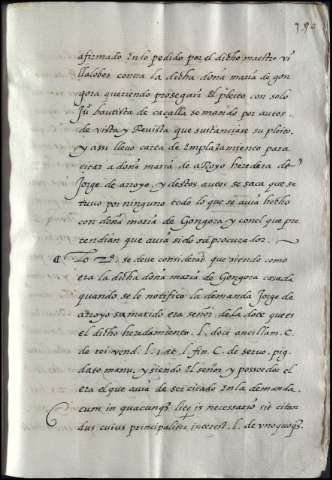 afirmado En lo pedido por el dicho maestre vi
llalobos contra la dicha doña maria de gon
gora queriendo proseguir El pleito con solo
Ju.º bautista de caçalla se mando por autos
de vista y Revista que sustanciase su pleito,
y assi lleuo carta de Emplazamiento para
citar a doña maria de aRoyo heredera de
Jorge de arroyo, y destos autos se saca que se
tuuo por ninguno todo lo que se auia hecho
con doña maria de Gongora y con el que pre
tendian que auia sido su procurador.
Lo se deue considerar que siendo como
era la dicha doña maria de Gongora casada
quando se le notifico la demanda Jorge de
arroyo su marido era señor de la dote que es
el dicho heredamiento. l. doce ancillam. C.
de rei vend. l. 1. et. l. fin. C. de seruo. pig.
dato manu. y siendo El señor y posseedor el
era el que auia de ser citado En la demanda.
cum in quacunq3 lite is necessario sit citan
dus cuius principaliter interest. l. de vnoquoq3.